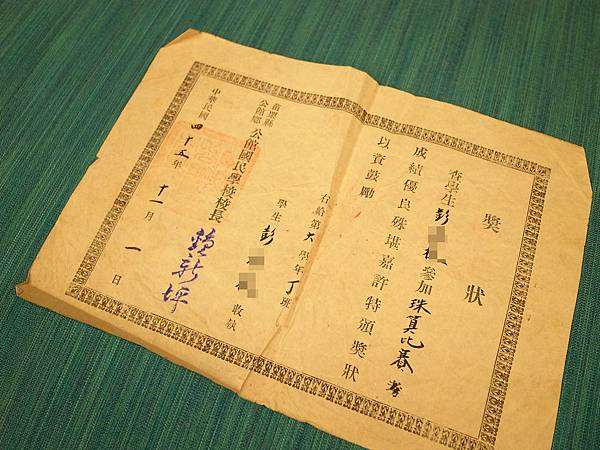 獎狀
查學生彭 參加珠算比賽
成績優良殊堪嘉許特頒獎狀
以資鼓勵
右給第六學年丁班
學生彭 收執
苗栗縣
公館鄉
公館國民學校校長
中華民國四十五年十一月一日